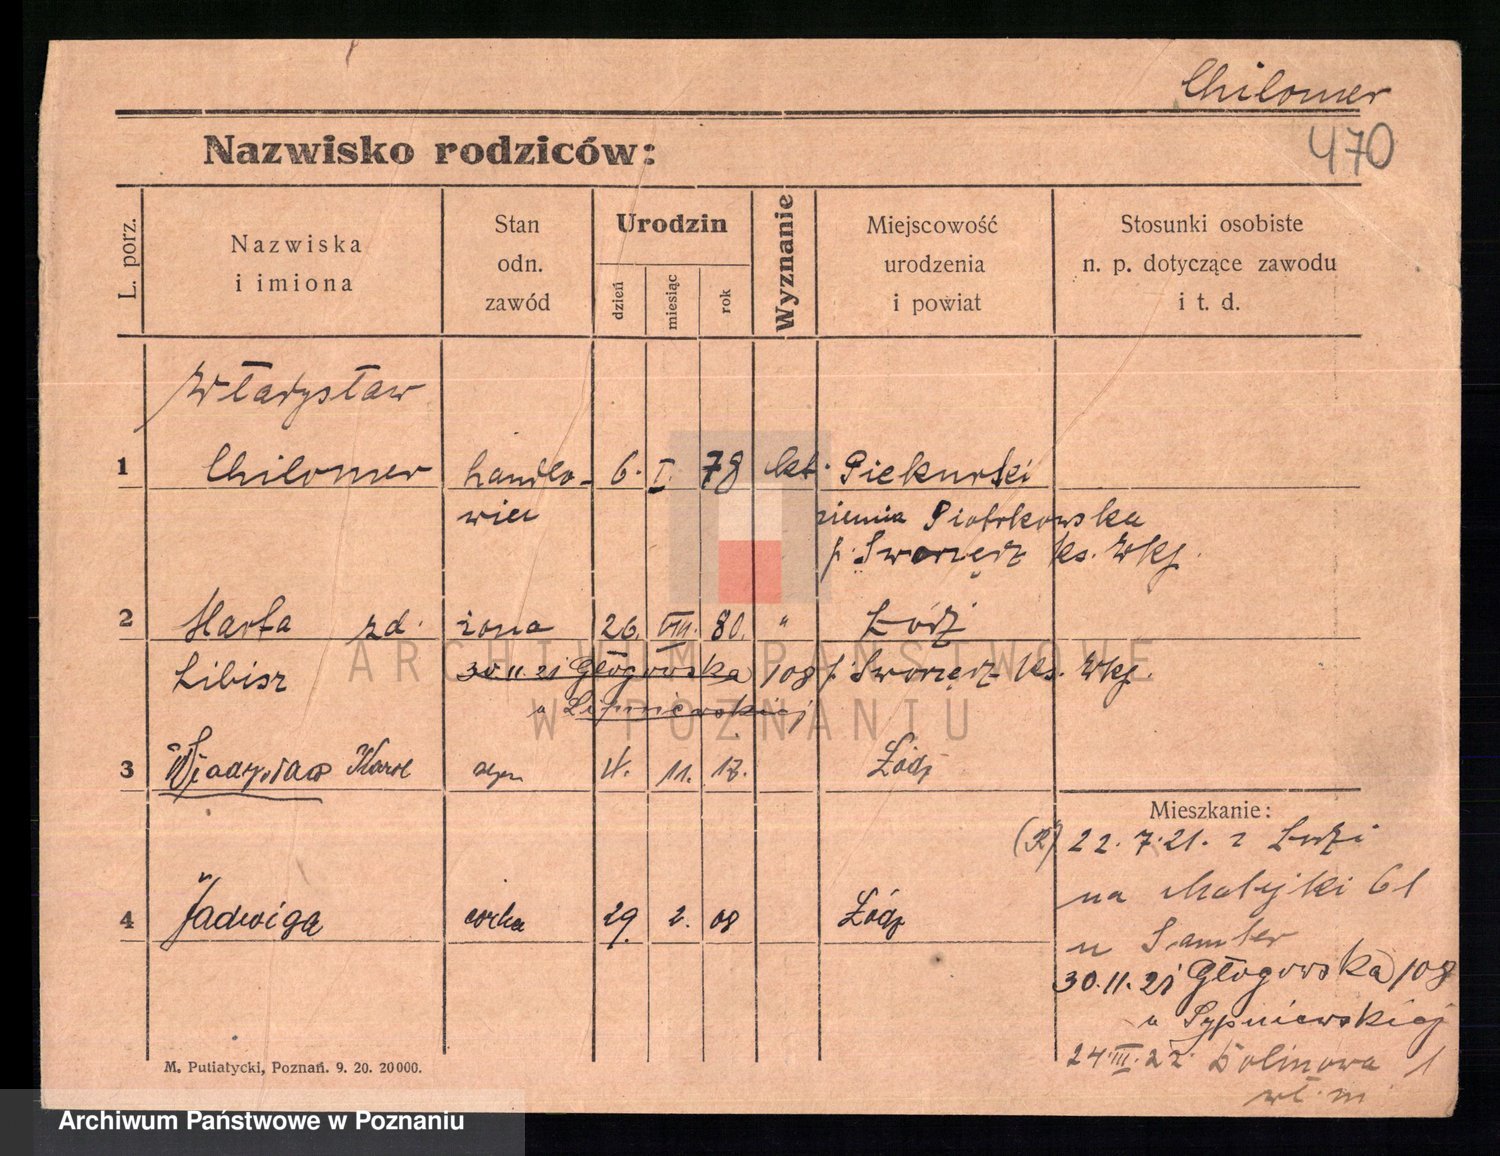 Chilomer
470
Nazwisko rodziców:
L. porz.
Nazwiska
i imiona
Stan
odn.
zawód
Urodzin
dzień
miesiąc
rok
Wyznanie
Miejscowość
urodzenia
i powiat
Stosunki osobiste
n. p. dotyczące zawodu
i t. d.
Władysław
1 Chilomer handlo- 6. I. 78 kt. Piekurski
wiec ziemia Piotrkowska
p. Swarzędz ks. Wkp.
2 Marta zd. żona 26. VIII. 80. " Łódź
Libisz 30.11.21 Głogowska 108 p. Swarzędz ks. Wkp.
u Sypniewskiej
3 Władysław Karol syn 4. 11. 12. Łódź
Mieszkanie:
(R) 22.7.21. z Łodzi
na Matejki 61
4 Jadwiga córka 29. 2. 08 Łódź
u Samter
30.11.21 Głogowska 108
u Sypniewskiej
24.III.22 Dolinowa 1
wł. m
M. Putiatycki, Poznań. 9. 20. 20000.
ARCHIWUM PAŃSTWOWE
W POZNANIU
Archiwum Państwowe w Poznaniu